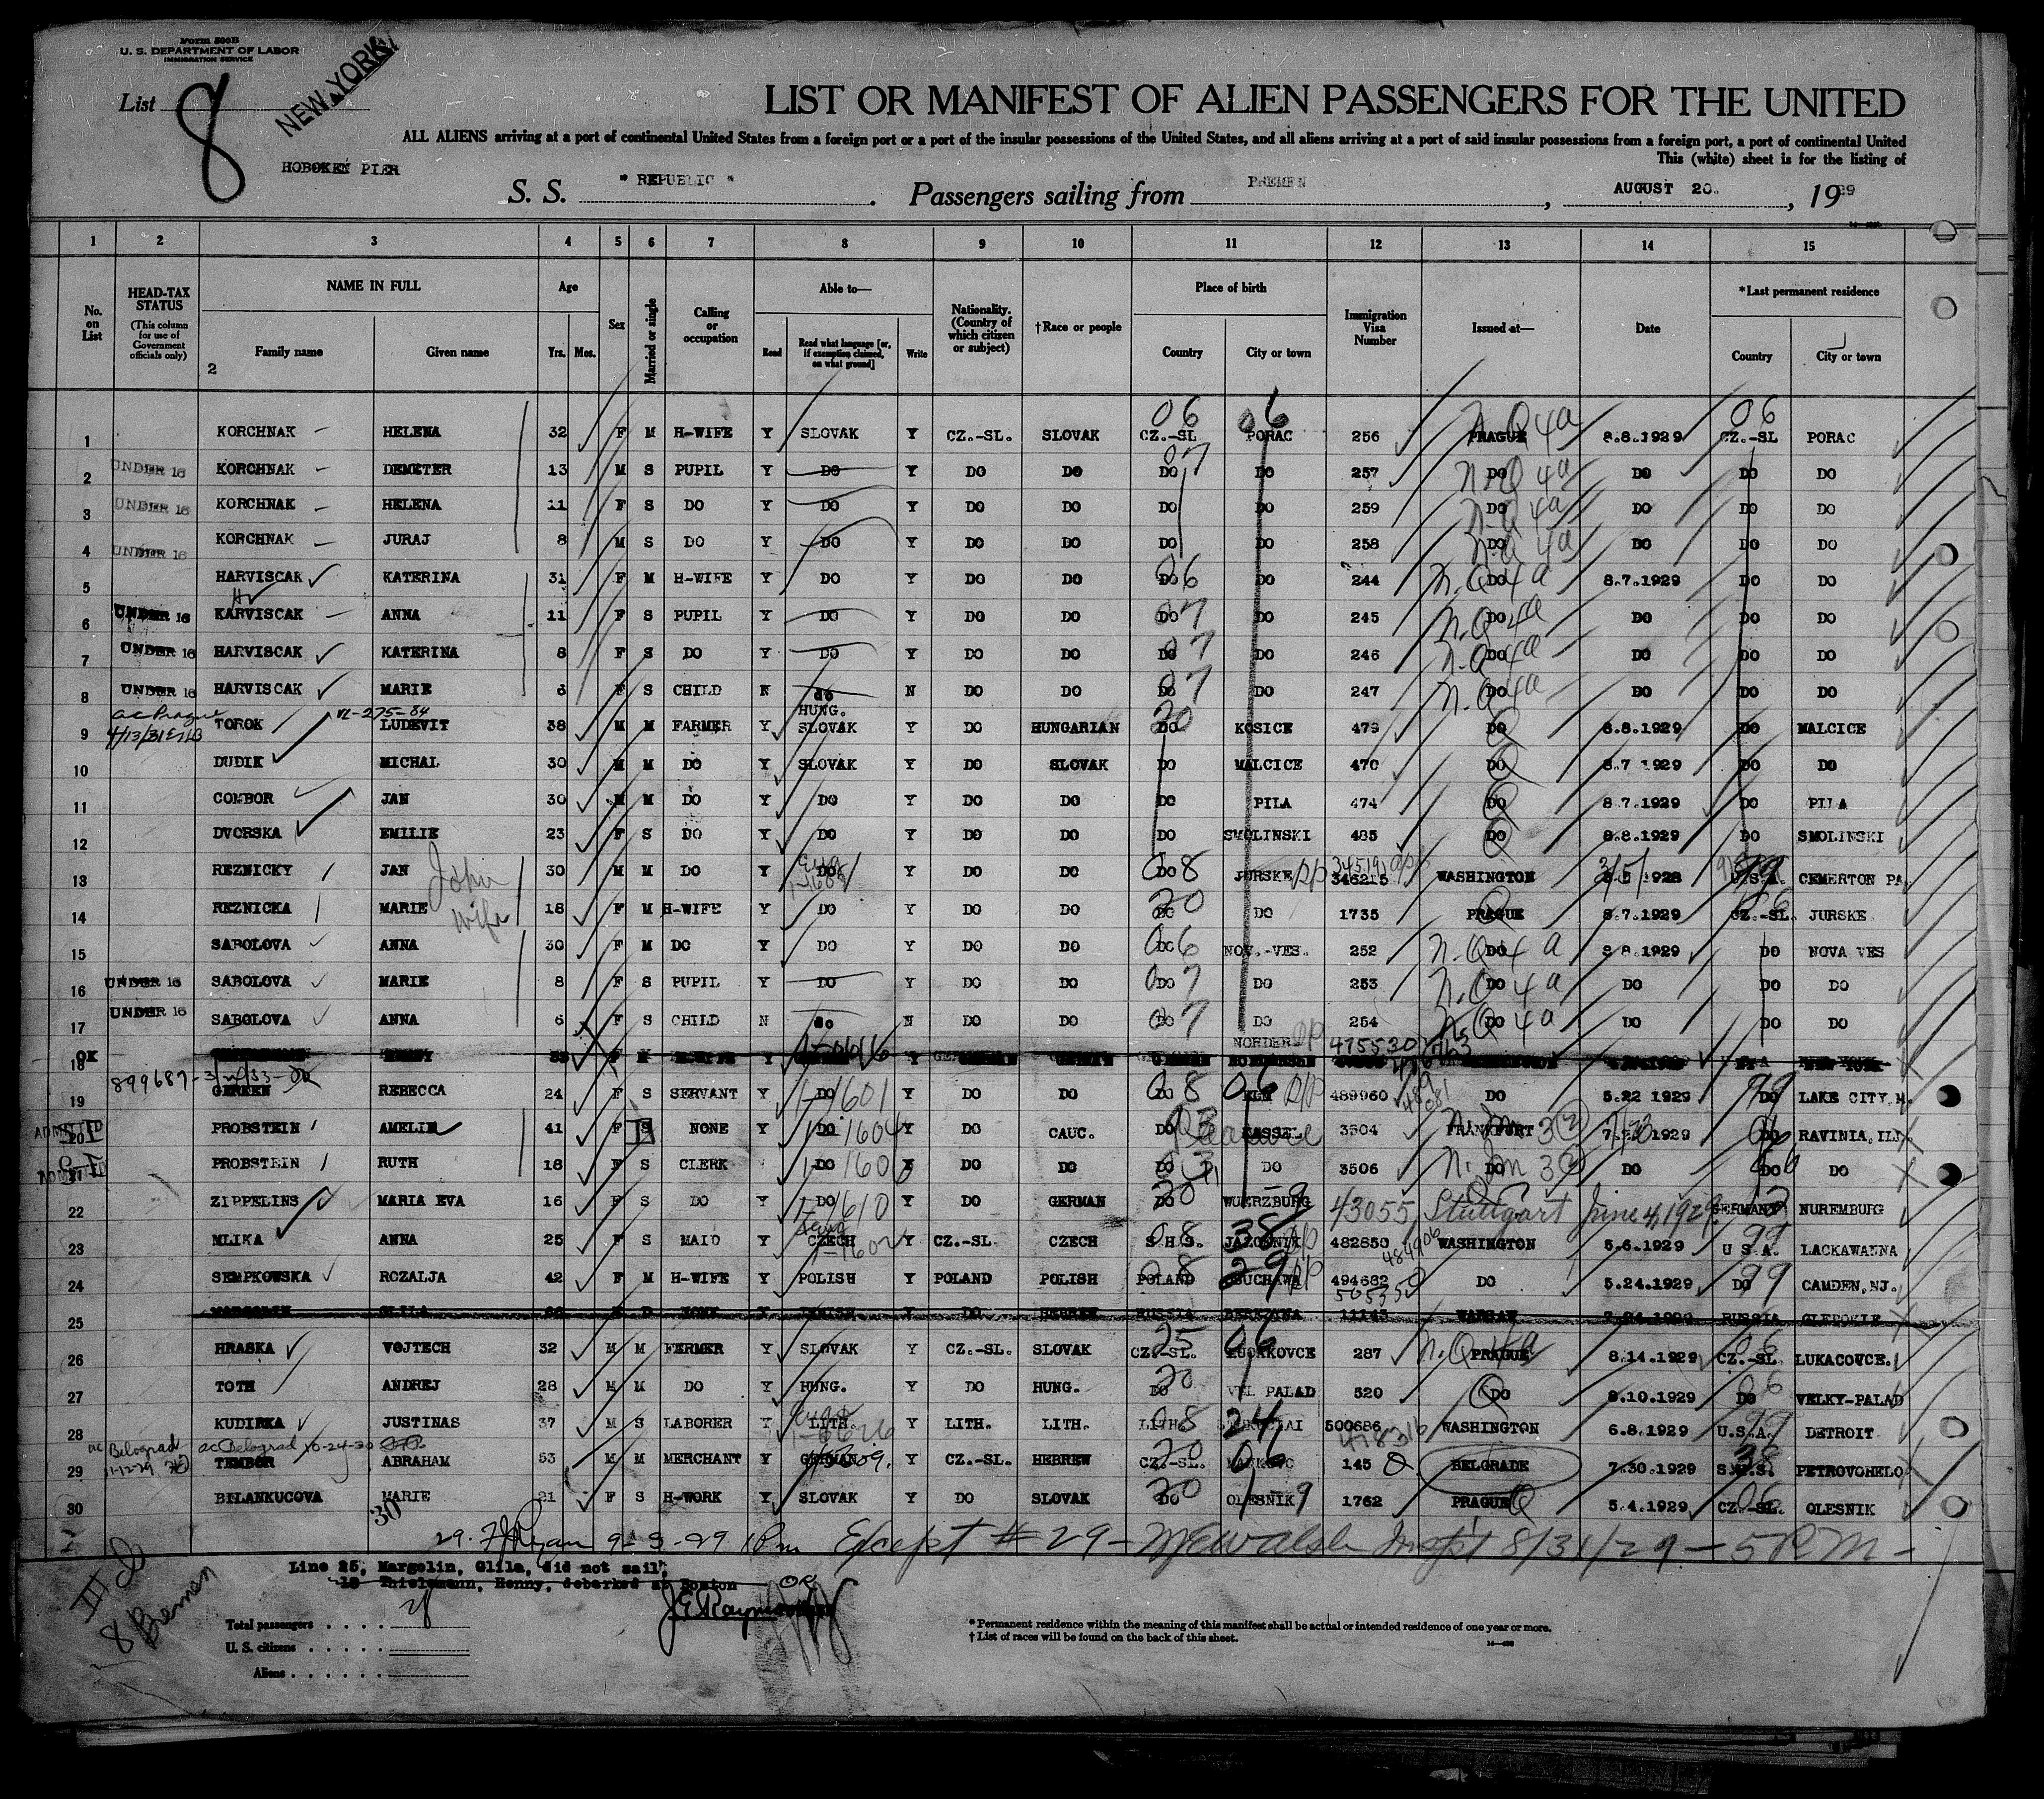 Form 500B
U. S. DEPARTMENT OF LABOR
IMMIGRATION SERVICE
List 8
NEW YORK
HOBOKEN PIER
LIST OR MANIFEST OF ALIEN PASSENGERS FOR THE UNITED
ALL ALIENS arriving at a port of continental United States from a foreign port or a port of the insular possessions of the United States, and all aliens arriving at a port of said insular possessions from a foreign port, a port of continental United
This (white) sheet is for the listing of
S. S. "REPUBLIC". Passengers sailing from, AUGUST 20., 1929
1 2 3 4 5 6 7 8 9 10 11 12 13 14 15
No. on List
HEAD-TAX STATUS (This column for use of Government officials only)
NAME IN FULL Family name Given name
Age Yrs. Mos.
Sex
Married or single
Calling or occupation
Able to— Read Read what language [or, if exemption claimed, on what ground] Write
Nationality. (Country of which citizen or subject)
†Race or people
Place of birth Country City or town
Immigration Visa Number
Issued at—
Date
*Last permanent residence Country City or town
1 KORCHNAK HELENA 32 F M H-WIFE Y SLOVAK Y CZ.-SL. SLOVAK CZ.-SL PORAC 256 PRAGUE N.Q 4a 8.8.1929 CZ.-SL PORAC
2 UNDER 16 KORCHNAK DEMETER 13 M S PUPIL Y DO Y DO DO DO DO 257 DO N.Q 4a DO DO DO
3 UNDER 16 KORCHNAK HELENA 11 F S DO Y DO Y DO DO DO DO 259 DO N.Q 4a DO DO DO
4 UNDER 16 KORCHNAK JURAJ 8 M S DO Y DO Y DO DO DO DO 258 DO N.Q 4a DO DO DO
5 HARVISCAK KATERINA 31 F M H-WIFE Y DO Y DO DO DO DO 244 DO N.Q 4a 8.7.1929 DO DO
6 UNDER 16 KARVISCAK ANNA 11 F S PUPIL Y DO Y DO DO DO DO 245 DO N.Q 4a DO DO DO
7 UNDER 16 HARVISCAK KATERINA 8 F S DO Y DO Y DO DO DO DO 246 DO N.Q 4a DO DO DO
8 UNDER 16 HARVISCAK MARIE 6 F S CHILD N do N DO DO DO DO 247 DO N.Q 4a DO DO DO
9 TOROK LUDEVIT 38 M M FARMER Y HUNG. SLOVAK Y DO HUNGARIAN DO KOSICE 479 DO 8.8.1929 DO MALCICE
10 DUDIK MICHAL 30 M M DO Y SLOVAK Y DO SLOVAK DO MALCICE 470 DO 8.7.1929 DO DO
11 COMBOR JAN 30 M M DO Y DO Y DO DO DO PILA 474 DO 8.7.1929 DO PILA
12 DVORSKA EMILIE 23 F S DO Y DO Y DO DO DO SMOLINSKI 485 DO 8.8.1929 DO SMOLINSKI
13 REZNICKY JAN John 30 M M DO Y DO Y DO DO DO JURSKE 346215 WASHINGTON 1928 U.S.A. CEMERTON PA.
14 REZNICKA MARIE wife 18 F M H-WIFE Y DO Y DO DO DO DO 1735 PRAGUE 8.7.1929 CZ.-SL. JURSKE
15 SABOLOVA ANNA 30 F M DO Y DO Y DO DO DO NOV.-VES. 252 DO N.Q 4a 8.8.1929 DO NOVA VES
16 UNDER 16 SABOLOVA MARIE 8 F S PUPIL Y DO Y DO DO DO DO 253 DO N.Q 4a DO DO DO
17 UNDER 16 SABOLOVA ANNA 6 F S CHILD N do N DO DO DO DO 254 DO N.Q 4a DO DO DO
18
19 REBECCA 24 F S SERVANT Y DO Y DO DO DO 489960 DO 5.22 1929 DO LAKE CITY,
20 ADMITTED PROBSTEIN AMELIE 41 F S NONE Y DO Y DO CAUC. DO KASSEL 3504 FRANKFURT 1929 RAVINIA, ILL.
21 ADMITTED PROBSTEIN RUTH 18 F S CLERK DO DO DO DO DO 3506 DO DO DO DO
22 ZIPPELINS MARIA EVA 16 F S DO Y DO Y DO GERMAN DO WUERZBURG 43055 Stuttgart June 4, 1929. GERMANY NUREMBURG
23 MLIKA ANNA 25 F S MAID Y CZECH Y CZ.-SL. CZECH S.H.S. 482850 WASHINGTON 5.6.1929 U.S.A. LACKAWANNA
24 SEMPKOWSKA ROZALJA 42 F M H-WIFE Y POLISH Y POLAND POLISH POLAND 494682 DO 5.24.1929 DO CAMDEN, NJ.
25 GLILA HEBREW RUSSIA 11145 WARSAW RUSSIA
26 HRASKA VOJTECH 32 M M FERMER Y SLOVAK Y CZ.-SL. SLOVAK CZ.-SL. 287 PRAGUE N.Q 4a 8.14.1929 CZ.-SL. LUKACOVCE.
27 TOTH ANDREJ 28 M M DO Y HUNG. Y DO HUNG. DO VEL PALAD 520 DO 8.10.1929 DO VELKY-PALAD
28 KUDIRKA JUSTINAS 37 M S LABORER Y LITH. Y LITH. LITH. LITH. 500686 WASHINGTON 6.8.1929 U.S.A. DETROIT
29 TEMBOR ABRAHAM 53 M M MERCHANT Y GERMAN Y CZ.-SL. HEBREW CZ.-SL. 145 BELGRADE 7.30.1929 S.H.S. PETROVOHELO
30 BILANKUCOVA MARIE 21 F S H-WORK Y SLOVAK Y DO SLOVAK DO OLESNIK 1762 PRAGUE 5.4.1929 CZ.-SL. OLESNIK
Except # 29 8/31/29 - 5 P.M -
Line 25, Margolin, Glila, did not sail,
18 Thielemann, Henny, debarked at Boston
8 Bremen
Total passengers
U. S. citizens
Aliens
* Permanent residence within the meaning of this manifest shall be actual or intended residence of one year or more.
† List of races will be found on the back of this sheet.